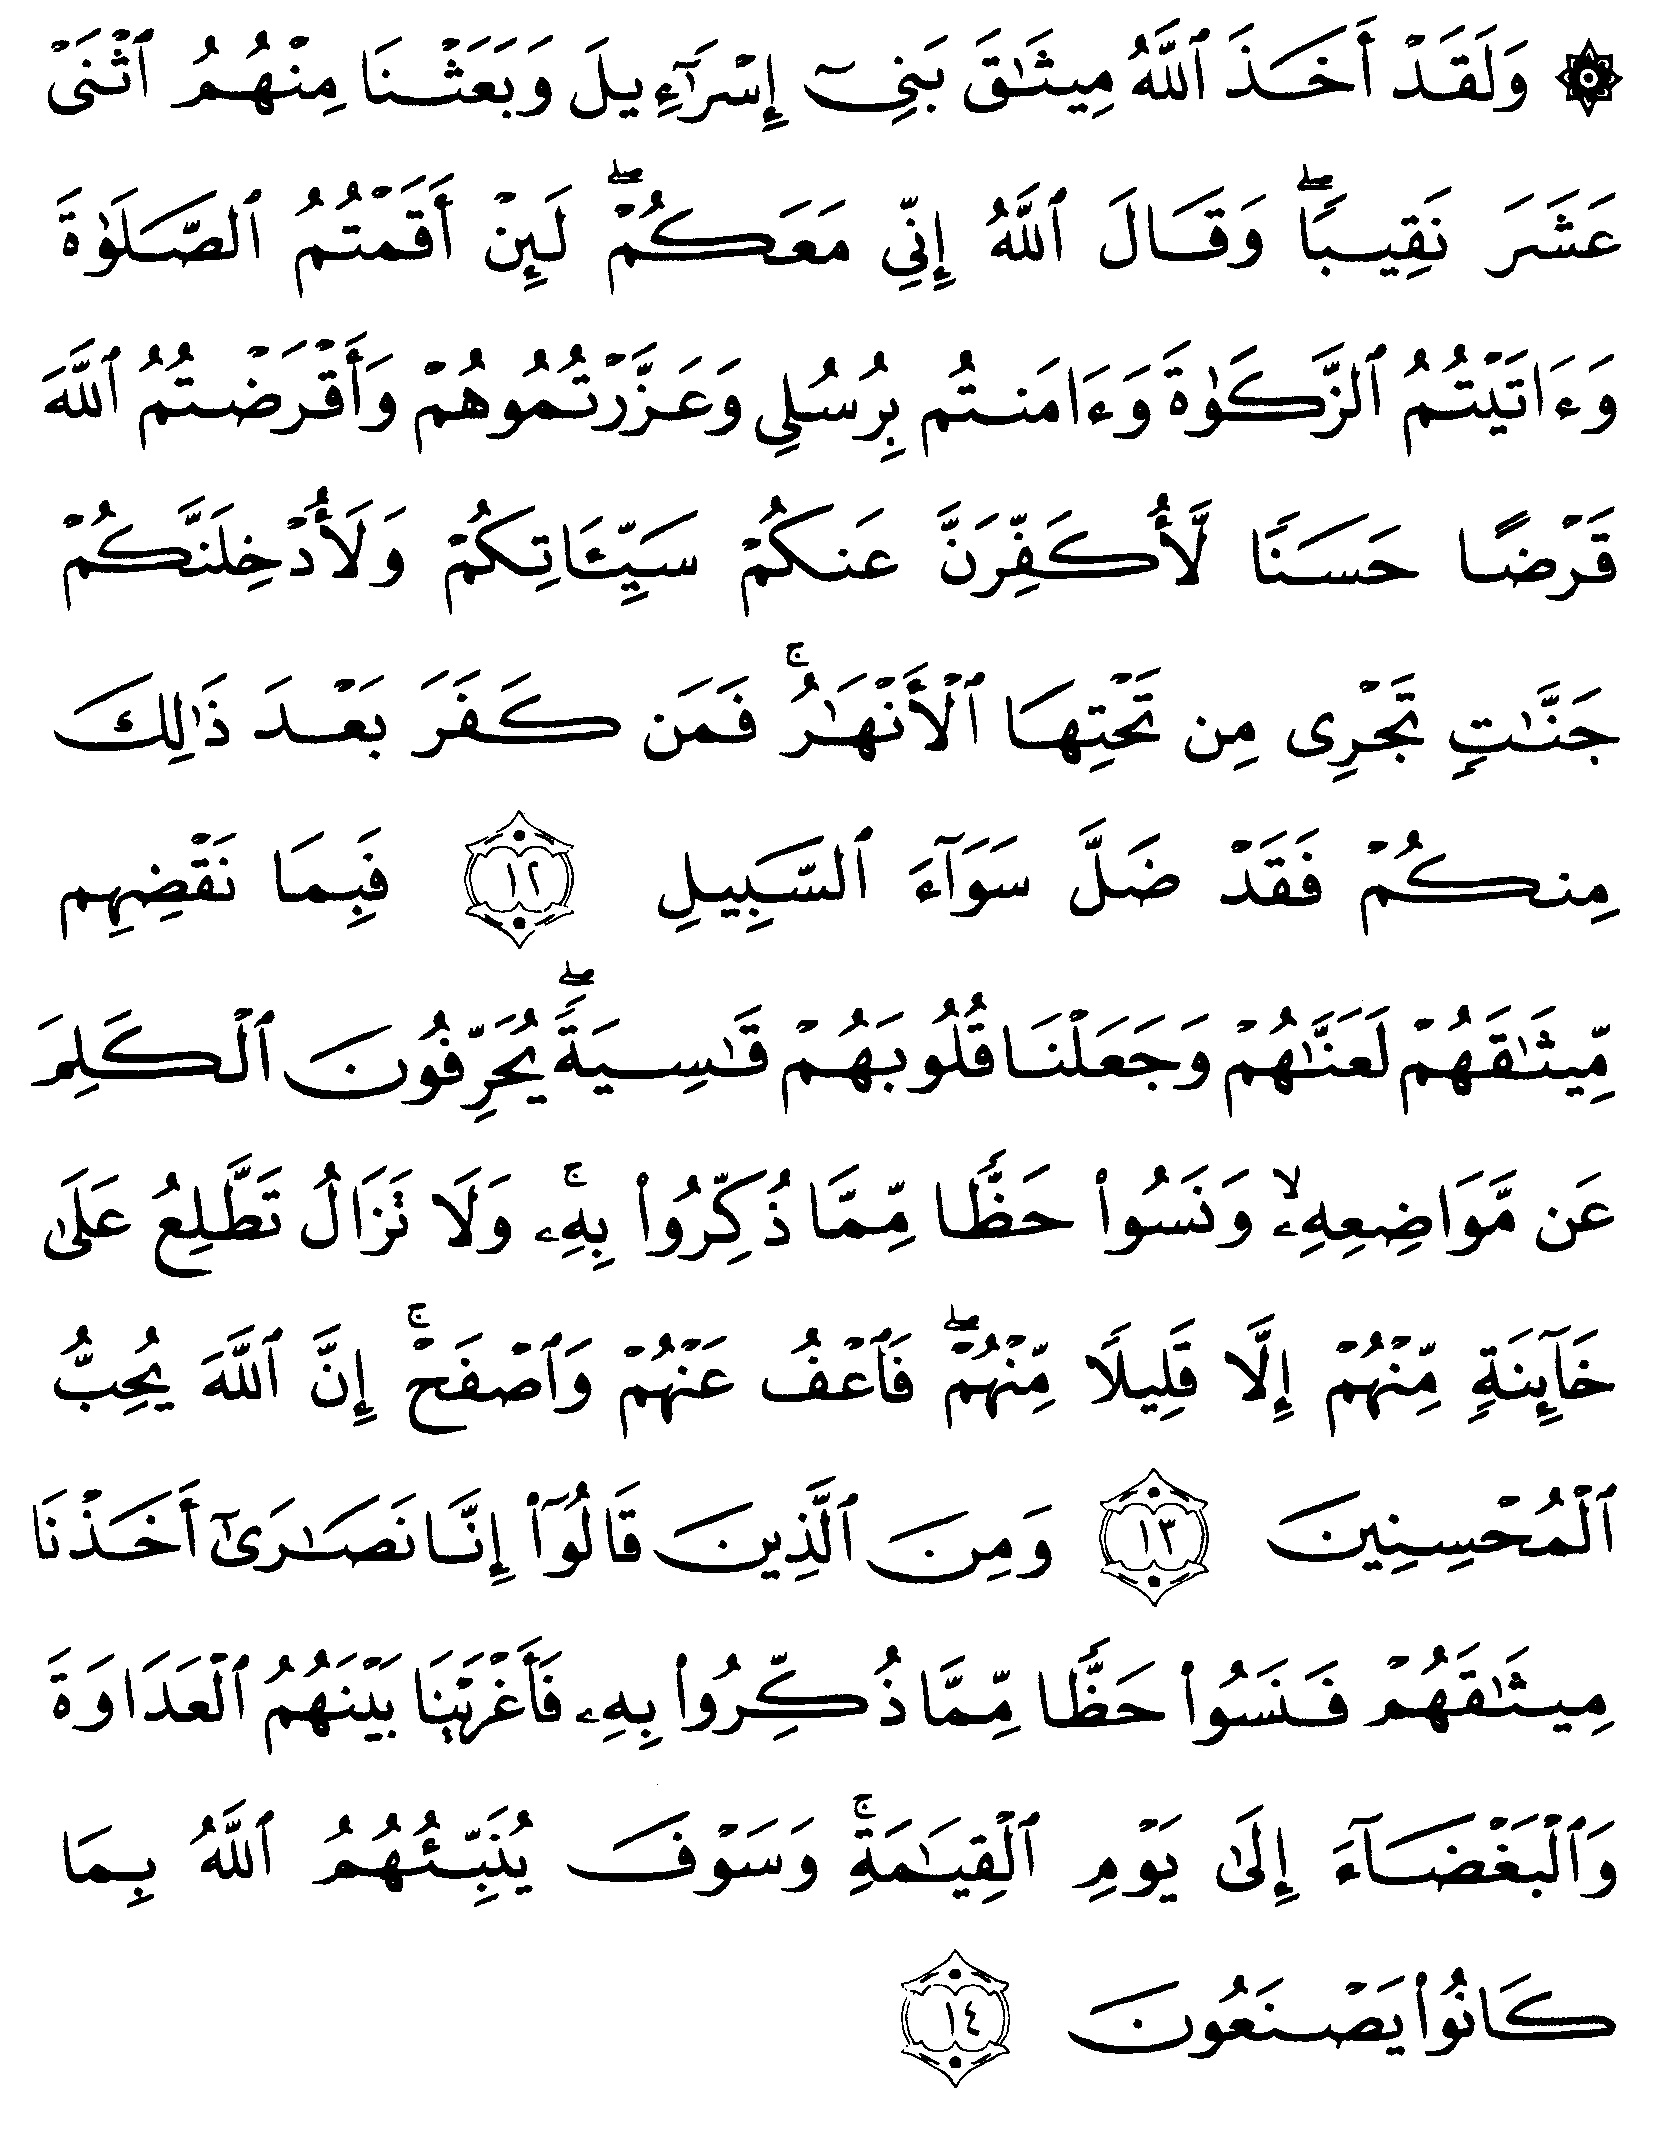 ۞ وَلَقَدْ أَخَذَ ٱللَّهُ مِيثَٰقَ بَنِىٓ إِسْرَٰٓءِيلَ وَبَعَثْنَا مِنْهُمُ ٱثْنَىْ
عَشَرَ نَقِيبًا ۖ وَقَالَ ٱللَّهُ إِنِّى مَعَكُمْ ۖ لَئِنْ أَقَمْتُمُ ٱلصَّلَوٰةَ
وَءَاتَيْتُمُ ٱلزَّكَوٰةَ وَءَامَنتُم بِرُسُلِى وَعَزَّرْتُمُوهُمْ وَأَقْرَضْتُمُ ٱللَّهَ
قَرْضًا حَسَنًا لَّأُكَفِّرَنَّ عَنكُمْ سَيِّـَٔاتِكُمْ وَلَأُدْخِلَنَّكُمْ
جَنَّٰتٍ تَجْرِى مِن تَحْتِهَا ٱلْأَنْهَٰرُ ۚ فَمَن كَفَرَ بَعْدَ ذَٰلِكَ
مِنكُمْ فَقَدْ ضَلَّ سَوَآءَ ٱلسَّبِيلِ ١٢ فَبِمَا نَقْضِهِم
مِّيثَٰقَهُمْ لَعَنَّٰهُمْ وَجَعَلْنَا قُلُوبَهُمْ قَٰسِيَةً ۖ يُحَرِّفُونَ ٱلْكَلِمَ
عَن مَّوَاضِعِهِۦ ۙ وَنَسُوا۟ حَظًّا مِّمَّا ذُكِّرُوا۟ بِهِۦ ۚ وَلَا تَزَالُ تَطَّلِعُ عَلَىٰ
خَآئِنَةٍ مِّنْهُمْ إِلَّا قَلِيلًا مِّنْهُمْ ۖ فَٱعْفُ عَنْهُمْ وَٱصْفَحْ ۚ إِنَّ ٱللَّهَ يُحِبُّ
ٱلْمُحْسِنِينَ ١٣ وَمِنَ ٱلَّذِينَ قَالُوٓا۟ إِنَّا نَصَٰرَىٰٓ أَخَذْنَا
مِيثَٰقَهُمْ فَنَسُوا۟ حَظًّا مِّمَّا ذُكِّرُوا۟ بِهِۦ فَأَغْرَيْنَا بَيْنَهُمُ ٱلْعَدَاوَةَ
وَٱلْبَغْضَآءَ إِلَىٰ يَوْمِ ٱلْقِيَٰمَةِ ۚ وَسَوْفَ يُنَبِّئُهُمُ ٱللَّهُ بِمَا
كَانُوا۟ يَصْنَعُونَ ١٤